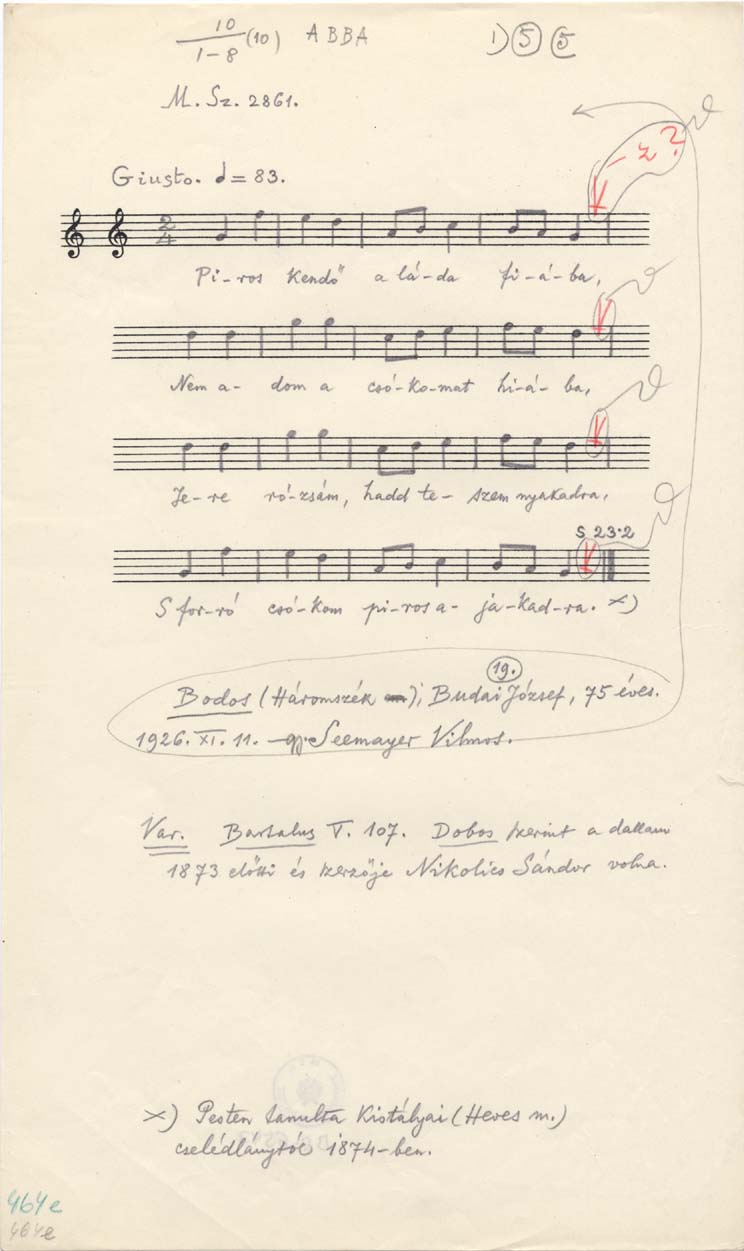 10
1-8 (10) ABBA 1) 5 5
M. Sz. 2861.
- z?
Giusto. = 83.
2
4
Pi-ros kendő a lá-da fi-á-ba,
Nem a- dom a csó-ko-mat hi-á- ba,
Je-re ró-zsám, hadd te- szem nyakadra,
S 23·2
S for-ró csó-kom pi-ros a- ja-kad-ra. x)
19.
Bodos (Háromszék ), Budai József, 75 éves.
1926. XI. 11. Seemayer Vilmos.
Var. Bartalus V. 107. Dobos szerint a dallam
1873 előtti és szerzője Nikolics Sándor volna.
x) Pesten tanulta Kistályai (Heves m.)
cselédlánytól 1874-ben.
464e
464e